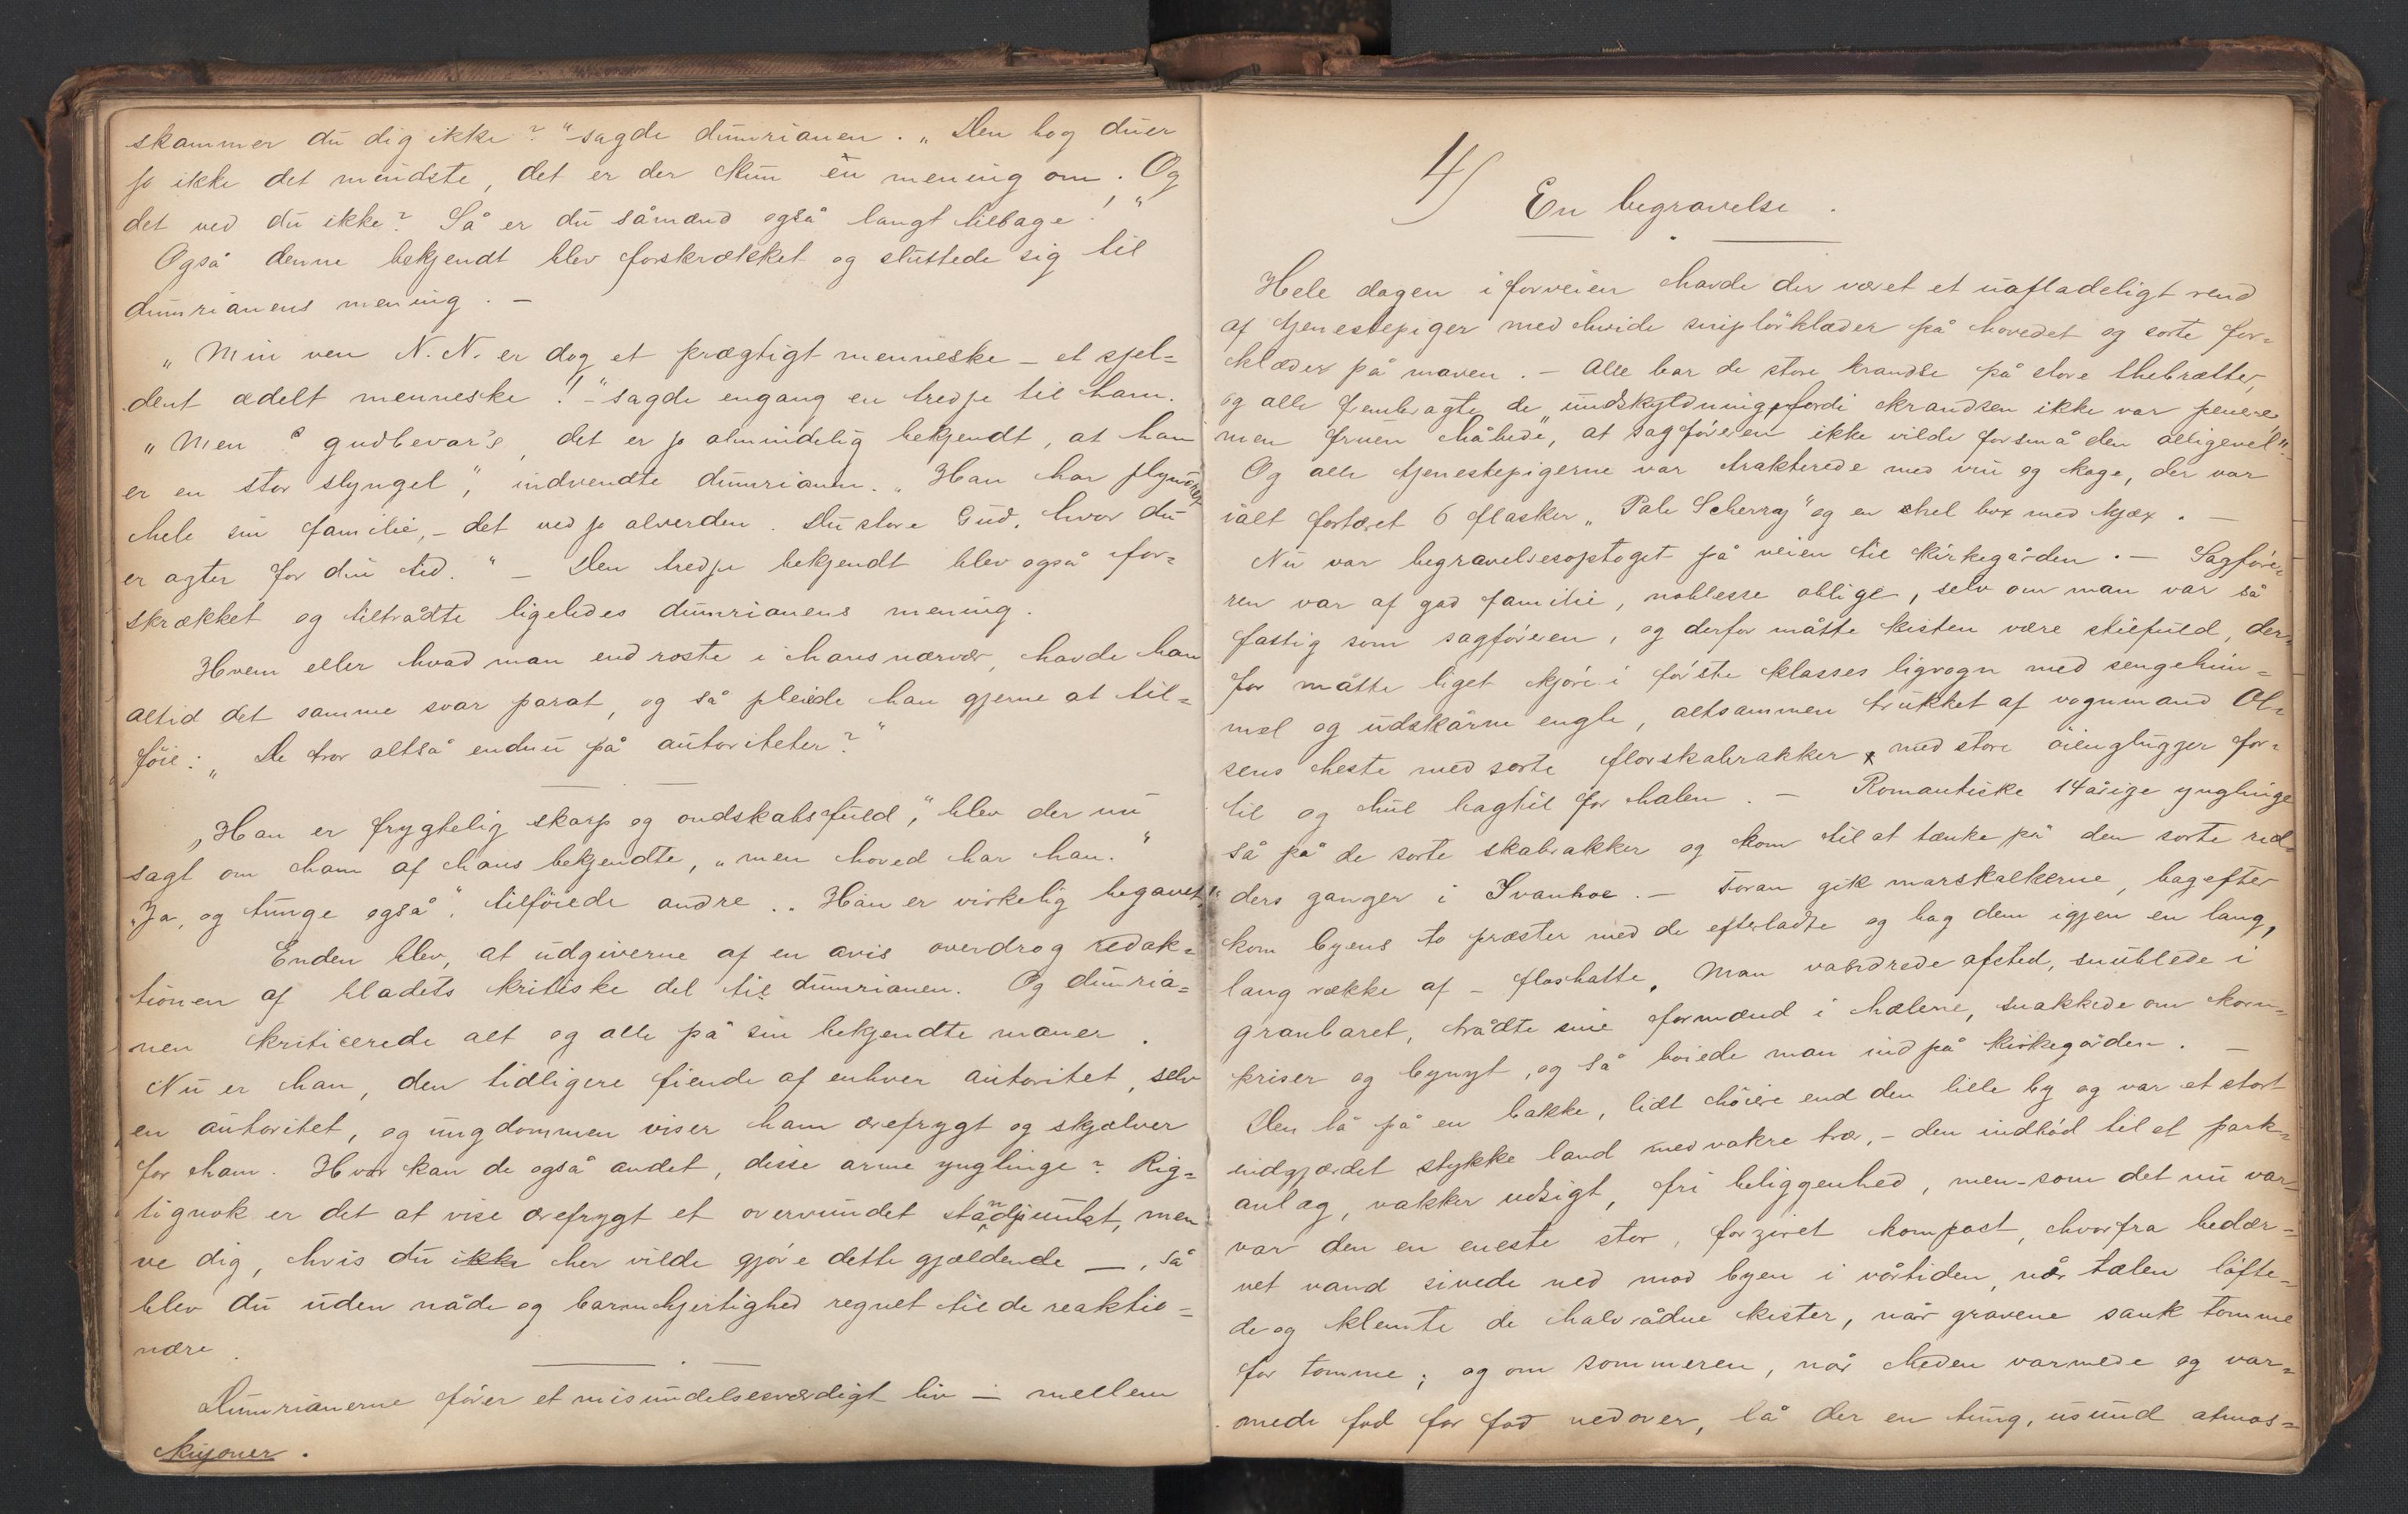 skammer du dig ikke?" - sagde dumrianen. „Den bog duer
jo ikke det mindste, det er der kun én mening om. Og
det ved du ikke? Så er du såmænd også langt tilbage!"
Også denne bekjendt blev forskrækket og sluttede sig til
dumrianens mening. —
„Min ven N. N. er dog et prægtigt menneske — et sjel=
dent ædelt menneske!" - sagde engang en tredje til ham.
„Men gudbevar's, det er jo almindelig bekjendt, at han
er en stor slyngel," indvendte dumrianen. „Han har plyndret
hele sin familie, - det ved jo alverden. Du store Gud, hvor du
er agter for din tid." — Den tredje bekjendt blev også for=
skrækket og tiltrådte ligeledes dumrianens mening.
Hvem eller hvad man end roste i hans nærvær, havde han
altid det samme svar parat, og så pleiede han gjerne at til=
føie: „De tror altså endnu på autoriteter?"
„Han er frygtelig skarp og ondskabsfuld," blev der nu
sagt om ham af hans bekjendte, „men hoved har han."
„Ja, og tunge også", tilføiede andre. „Han er virkelig begavet."
Enden blev, at udgiverne af en avis overdrog redak=
tionen af bladets kritiske del til dumrianen. Og dumria=
nen kriticerede alt og alle på sin bekjendte maner.
Nu er han, den tidligere fiende af enhver autoritet, selv
en autoritet, og ungdommen viser ham ærefrygt og skjælver
for ham. Hvor kan de også andet, disse arme ynglinge? Rig=
tignok er det at vise ærefrygt et overvundet standpunkt, men
ve dig, hvis du ikke her vilde gjøre dette gjældende —, så
blev du uden nåde og barmhjertighed regnet til de reaktio=
nære.
Dumrianerne fører et misundelsesværdigt liv — mellem
kujoner.
4)
En begravelse.
Hele dagen iforveien havde der været et uafladeligt rend
af tjenestepiger med hvide snipտörklæder på hovedet og sorte for=
klæder på maven. — Alle bar de store krandse på store thebrætter,
og alle frembragte de „undskyldning, fordi krandsen ikke var penere,
men fruen håbede, at sagføreren ikke vilde forsmå den alligevel".
Og alle tjenestepigerne var trakterede med vin og kage, der var
ialt fortæret 6 flasker „Pale Scherry" og en hel box med kjæx. —
Nu var begravelsesoptoget på veien til kirkegården. — Sagføre=
ren var af god familie, noblesse oblige, selv om man var så
fattig som sagføreren, og derfor måtte kisten være stilfuld, der=
for måtte liget kjøre i første klasses ligvogn med sengehim=
mel og udskårne engle, altsammen trukket af vognmand Ol=
sens heste med sorte florskabrakker, med store øiengluggger for=
til og hul bagtil for halen. — Romantiske 14 årige ynglinge
så på de sorte skabrakker og kom til at tænke på den sorte rid=
ders ganger i Ivanhoe. — Foran gik marskalkerne, bagefter
kom byens to præster med de efterladte og bag dem igjen en lang,
lang række af — floshatte. Man vandrede afsted, snublede i
granbaret, trådte sine formænd i hælene, snakkede om korn=
priser og bynyt, og så bøiede man ind på kirkegården. —
Den lå på en bakke, lidt høiere end den lille by og var et stort
indgjærdet stykke land med vakre træ, - den indbød til et park=
anlæg, vakker udsigt, fri beliggenhed, men - som det nu var
var den en eneste stor, forziret kompost, hvorfra bedær=
vet vand sivede ned mod byen i vårtiden, når tælen løfte=
de og klemte de halvrådne kister, når gravene sank tomme
for tomme; og om sommeren, når heden varmede og var=
mede fod for fod nedover, lå der en tung, usund atmos=